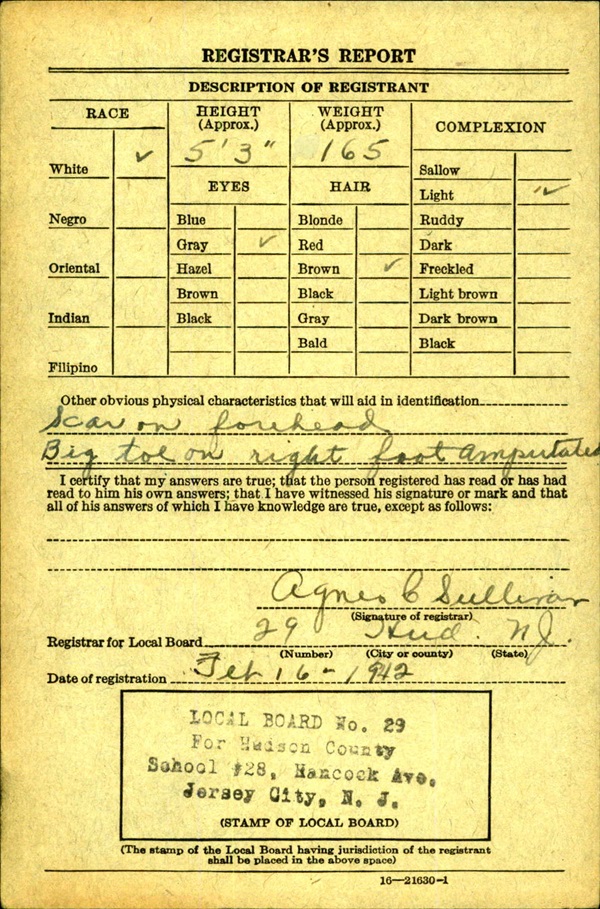 REGISTRAR'S REPORT
DESCRIPTION OF REGISTRANT
RACE
HEIGHT
(Approx.)
WEIGHT
(Approx.)
COMPLEXION
5' 3"
165
White ✓
EYES
HAIR
Sallow
Light ✓
Negro
Blue
Blonde
Ruddy
Gray ✓
Red
Dark
Oriental
Hazel
Brown ✓
Freckled
Brown
Black
Light brown
Indian
Black
Gray
Dark brown
Bald
Black
Filipino
Other obvious physical characteristics that will aid in identification
Scar on forehead
Big toe on right foot amputated
I certify that my answers are true; that the person registered has read or has had
read to him his own answers; that I have witnessed his signature or mark and that
all of his answers of which I have knowledge are true, except as follows:
Agnes C Sullivan
(Signature of registrar)
Registrar for Local Board 29 Hud. N.J.
(Number) (City or county) (State)
Date of registration Feb 16 - 1942
LOCAL BOARD No. 29
For Hudson County
School #28, Hancock Ave.
Jersey City, N. J.
(STAMP OF LOCAL BOARD)
(The stamp of the Local Board having jurisdiction of the registrant
shall be placed in the above space)
16—21630-1